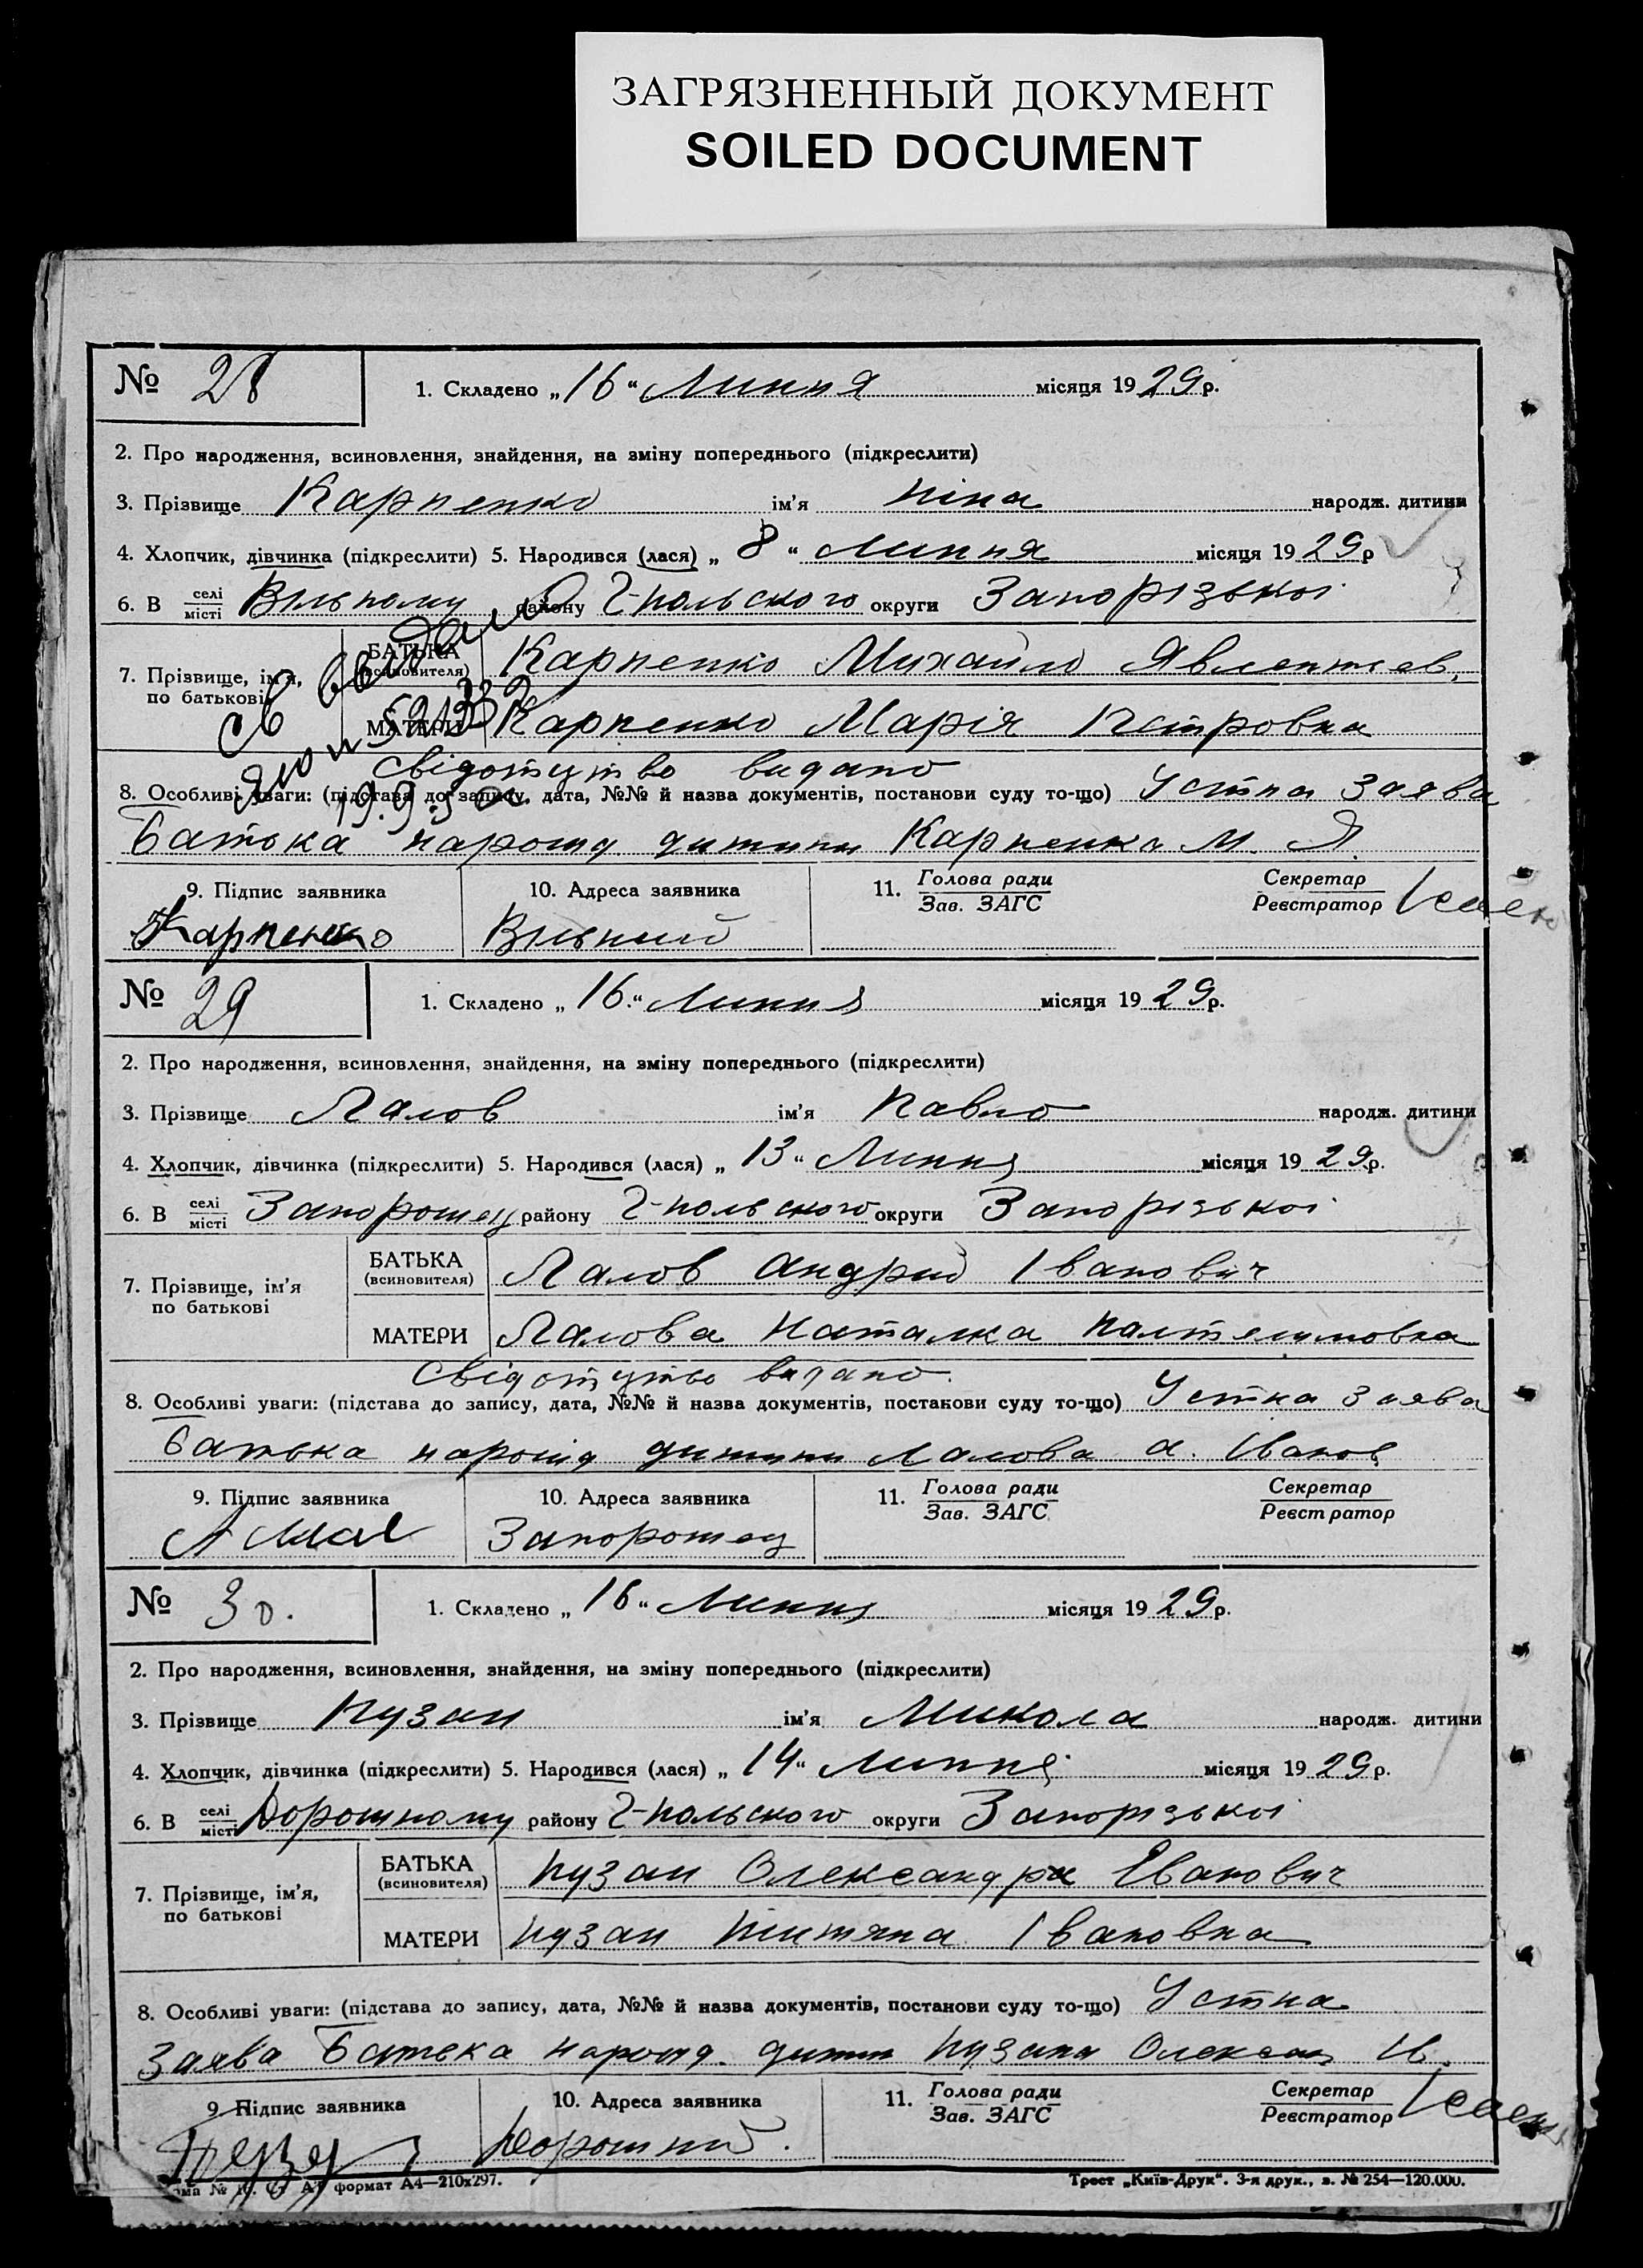 ЗАГРЯЗНЕННЫЙ ДОКУМЕНТ
SOILED DOCUMENT
№ 28
1. Складено „16“ Липня місяця 1929 р.
2. Про народження, всиновлення, знайдення, на зміну попереднього (підкреслити)
3. Прізвище Карпенко ім'я Ніна народж. дитини
4. Хлопчик, дівчинка (підкреслити) 5. Народився (лася) „8“ Липня місяця 1929 р
6. В селі місті Вільному району Г-польского округи Запорізької
7. Прізвище, ім'я, по батькові
БАТЬКА (всиновителя) Карпенко Михайло Явлентьев.
МАТЕРИ Карпенко Марія Петровна
Свідотцтво видано
8. Особливі уваги: (підстава до запису, дата, №№ й назва документів, постанови суду то-що) Устна заява
батька нарошд дитини Карпенка М. Я.
9. Підпис заявника 10. Адреса заявника 11. Голова ради Зав. ЗАГС Секретар Реєстратор
Карпенко Вільний
№ 29
1. Складено „16.“ Липня місяця 1929 р.
2. Про народження, всиновлення, знайдення, на зміну попереднього (підкреслити)
3. Прізвище Лалов ім'я Павло народж. дитини
4. Хлопчик, дівчинка (підкреслити) 5. Народився (лася) „13“ Липня місяця 1929 р.
6. В селі місті Запорошец району Г-польского округи Запорізької
7. Прізвище, ім'я по батькові
БАТЬКА (всиновителя) Лалов Андрий Іванович
МАТЕРИ Лалова Наталка
Свідотцтво видано.
8. Особливі уваги: (підстава до запису, дата, №№ й назва документів, постанови суду то-що) Устна заява
батька нарошд дитини Лалова А. Іванов
9. Підпис заявника 10. Адреса заявника 11. Голова ради Зав. ЗАГС Секретар Реєстратор
Запорошец
№ 30.
1. Складено „16“ Липня місяця 1929 р.
2. Про народження, всиновлення, знайдення, на зміну попереднього (підкреслити)
3. Прізвище Пузан ім'я Микола народж. дитини
4. Хлопчик, дівчинка (підкреслити) 5. Народився (лася) „14“ Липня місяця 1929 р.
6. В селі місті Дорошному району Г-польского округи Запорізької
7. Прізвище, ім'я, по батькові
БАТЬКА (всиновителя) Пузан Олександра Еванович
МАТЕРИ Пузан Титяна Івановна
8. Особливі уваги: (підстава до запису, дата, №№ й назва документів, постанови суду то-що) Устна
заява батька нарошд. дитини Пузана Олексан
9. Підпис заявника 10. Адреса заявника 11. Голова ради Зав. ЗАГС Секретар Реєстратор
Дорошний.
формат А4—210х297. Трест „Київ-Друк“. 3-я друк., з. № 254—120.000.